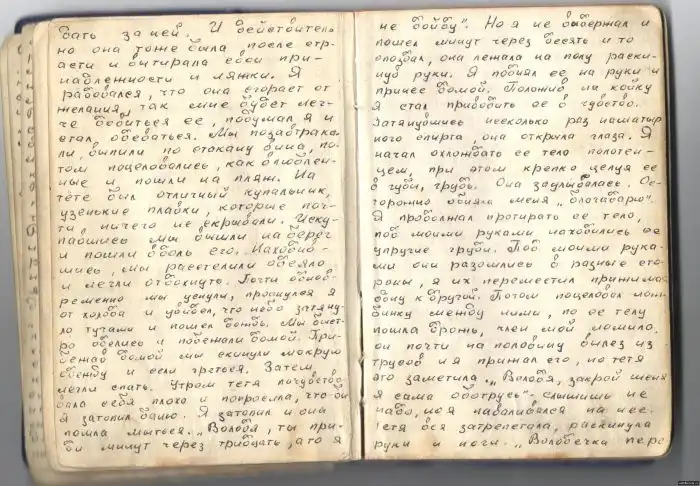 вать за ней. И действитель
но она тоже была после стр-
асти и вытирала свои при-
надлежности и ляжки. Я
радовался, что она сгорает от
желания, так мне будет лег-
че добиться ее, подумал я и
стал одеваться. Мы позавтрака-
ли, выпили по стакану вина, по-
том поцеловались, как влюблен-
ные и пошли на пляж. На
тёте был отличный купальник,
узенькие плавки, которые поч-
ти ничего не скрывали. Иску-
павшись мы вышли на берег
и пошли вдоль его.
шись, мы расстелили одеяло
и легли отдохнуть. Почти однов-
ременно мы уснули, проснулся я
от холода и увидел, что небо затяну-
ло тучами и пошел дождь. Мы быст-
ро оделись и побежали домой. При-
бежав домой мы скинули мокрую
одежду и сели греться. Затем
легли спать. Утром тетя почувство
вала себя плохо и попросила, что бы
я затопил баню. Я затопил и она
пошла мыться. „Володя, ты при-
ди минут через тридцать, а то я
не дойду". Но я не выдержал и
пошел минут через десять и то
опоздал, она лежала на полу раски-
нув руки. Я поднял ее на руки и
принес домой. Положив на койку
я стал приводить ее в чувство.
Затянувшись несколько раз нашатыр
ного спирта, она открыла глаза. Я
начал охлождать ее тело полотен-
цем, при этом крепко целуя ее
в губы, грудь. Она заулыбалась. Ос-
торожно обняла меня
Я продолжал протирать ее тело,
под моими руками находились ее
упругие груди. Под моими рука-
ми они разошлись в разные сто-
роны, я их переместил прижимая
одну к другой. Потом поцеловал лож-
бинку между ними, по ее телу
пошла дрожь, член мой ломило.
он почти на половину вылез из
трусов и я прижал его, но тетя
это заметила „Володя, закрой меня
я сама оботрусь", слышишь не
надо, но я наваливался на нее.
Тетя вся затрепетала, раскинула
руки и ноги. „Володечка пере